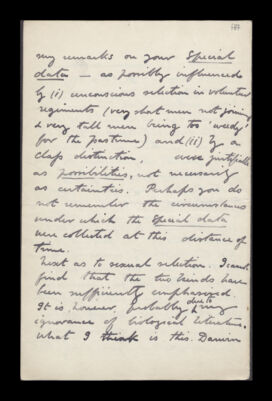 my remarks on your Special
data — as possibly influenced
by (i) unconscious selection in volunteer
regiments (very short men not joining
& very tall men being too 'weedy'
for the pastime) and (ii) by a
class distinction, were justifiable
as possibilities, not necessarily
as certainties. Perhaps you do
not remember the circumstances
under which the special data
were collected at this distance of
time.
Next as to sexual selection. I cannot
find that the two kinds have
been sufficiently emphasized.
It is however probably due to my
ignorance of biological literature.
what I think is this. Darwin